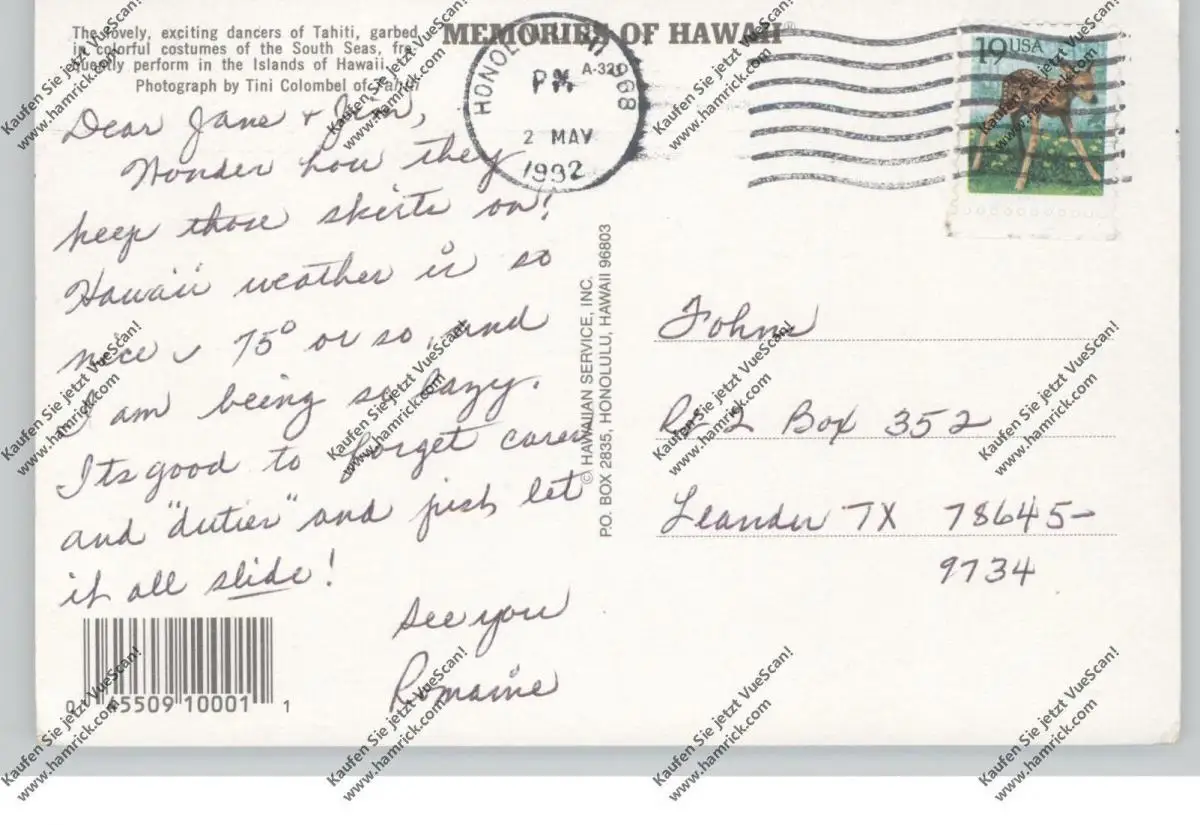 The lovely, exciting dancers of Tahiti, garbed
in colorful costumes of the South Seas, fre-
quently perform in the Islands of Hawaii.
Photograph by Tini Colombel of Tahiti
MEMORIES OF HAWAII®
HONOLULU HI 968
A-320
PM
2 MAY
1992
19 USA
Dear Jane + Jim,
Wonder how they
keep those skirts on!
Hawaii weather is so
nice ~ 75° or so, and
I am being so lazy.
Its good to forget cares
and "duties" and just let
it all slide!
See you
Romaine
© HAWAIIAN SERVICE, INC.
P.O. BOX 2835, HONOLULU, HAWAII 96803
Rt 2 Box 352
Leander TX 78645-
9734
0 45509 10001 1
Kaufen Sie jetzt VueScan!
www.hamrick.com
Kaufen Sie jetzt VueScan!
www.hamrick.com
Kaufen Sie jetzt VueScan!
www.hamrick.com
Kaufen Sie jetzt VueScan!
www.hamrick.com
Kaufen Sie jetzt VueScan!
www.hamrick.com
Kaufen Sie jetzt VueScan!
www.hamrick.com
Kaufen Sie jetzt VueScan!
www.hamrick.com
Kaufen Sie jetzt VueScan!
www.hamrick.com
Kaufen Sie jetzt VueScan!
www.hamrick.com
Kaufen Sie jetzt VueScan!
www.hamrick.com
Kaufen Sie jetzt VueScan!
www.hamrick.com
Kaufen Sie jetzt VueScan!
www.hamrick.com